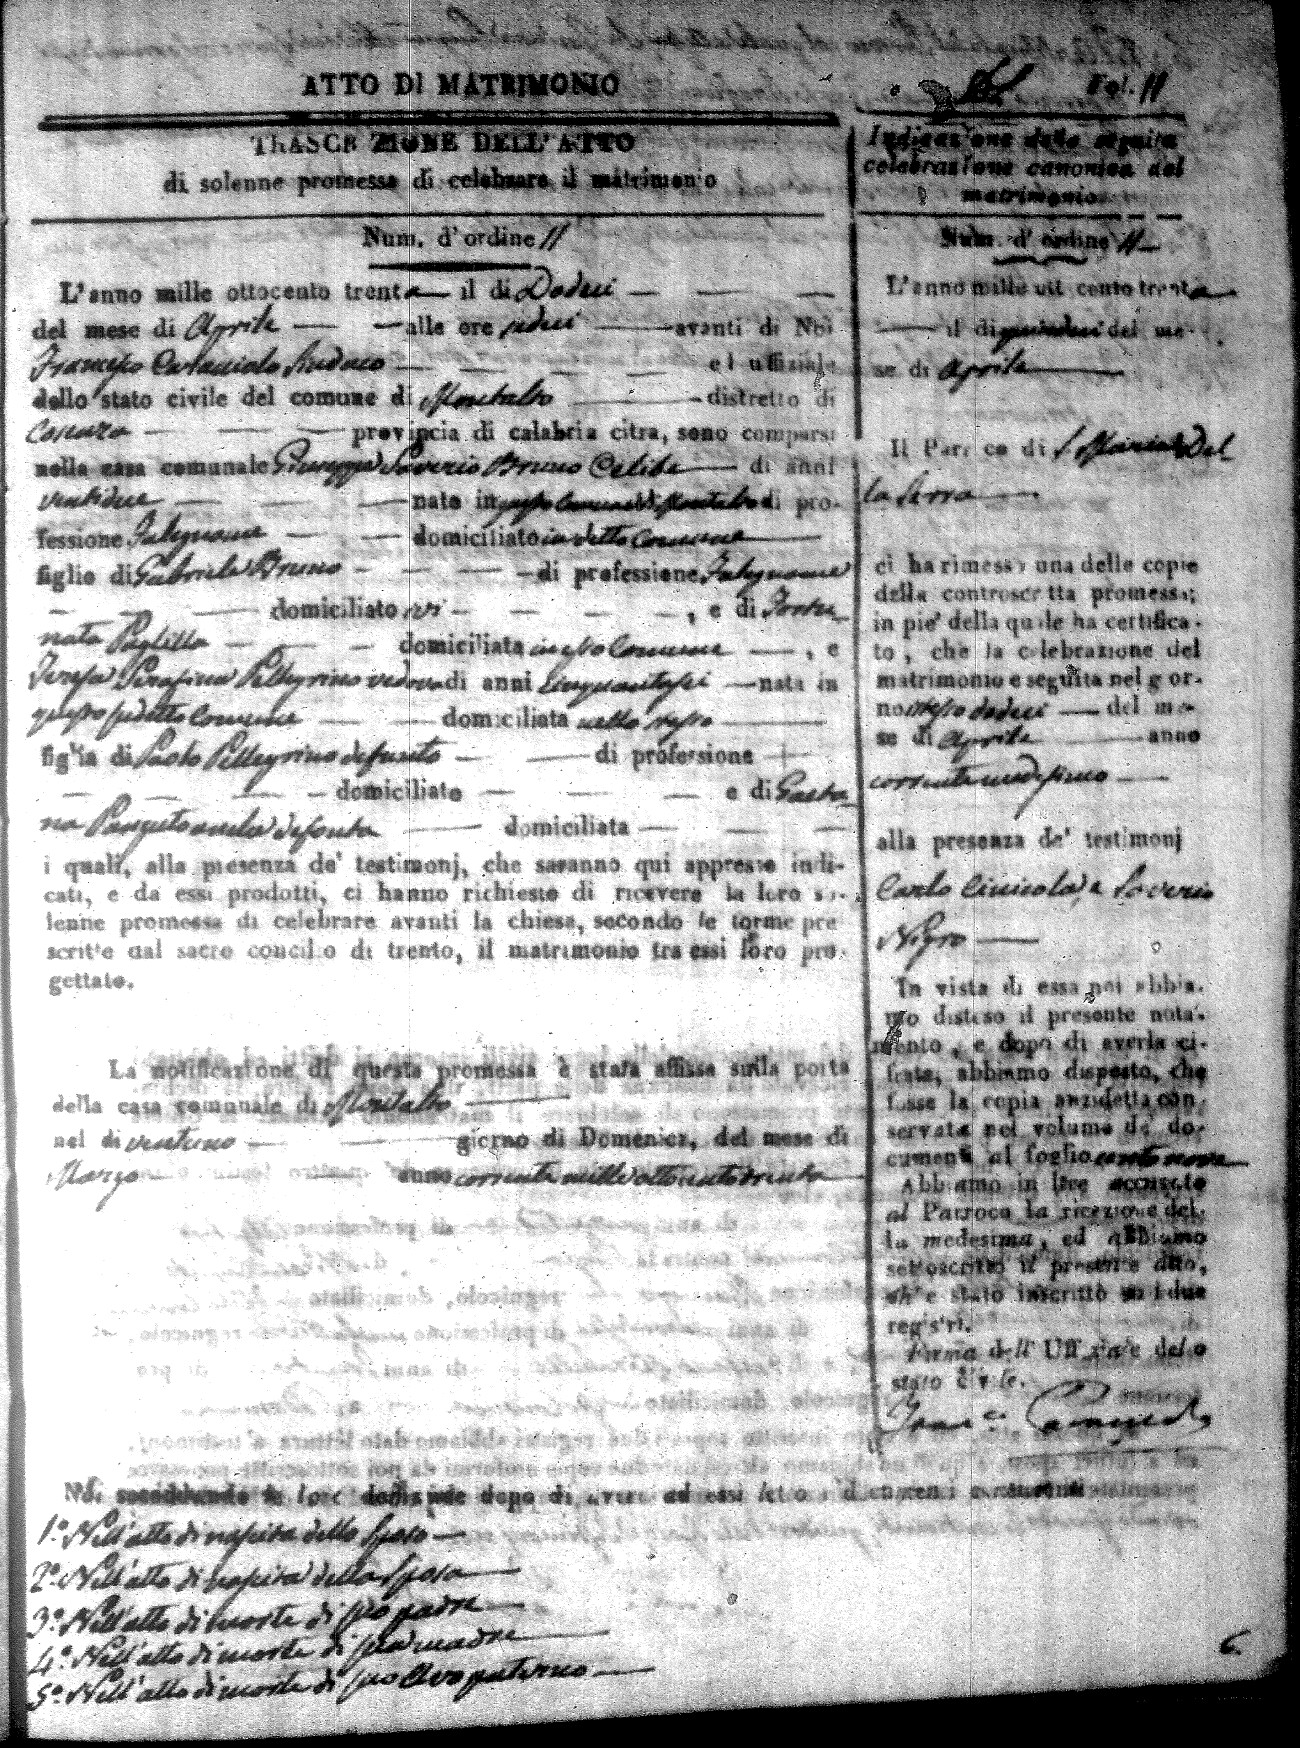 ATTO DI MATRIMONIO
Fol. 11
TRASCRIZIONE DELL'ATTO
di solenne promessa di celebrare il matrimonio
Num. d'ordine 11
L'anno mille ottocento trenta il di Dodeci
del mese di Aprile alle ore sedeci avanti di Noi
Francesco Sindaco ed uffiziale
dello stato civile del comune di Montalto distretto di
Cosenza provincia di calabria citra, sono comparsi
nella casa comunale Giuseppe Saverio Bruno Celibe di anni
ventidue nato in questo Comune di Montalto di pro-
fessione Falegname domiciliato in detto Comune
figlio di Gabriele Bruno di professione Falegname
domiciliato ivi , e di Fortu
nata domiciliata in esso Comune , e
Teresa Serafina Pellegrino vedova di anni cinquantasei nata in
questo sudetto Comune domiciliata nello stesso
figlia di Paolo Pellegrino defunto di professione
domiciliato e di Gaeta
na defonta domiciliata
i quali, alla presenza de' testimonj, che saranno qui appresso indi-
cati, e da essi prodotti, ci hanno richiesto di ricevere la loro so-
lenne promessa di celebrare avanti la chiesa, secondo le forme pre
scritte dal sacro concilio di trento, il matrimonio tra essi loro pro-
gettato.
La notificazione di questa promessa è stata affissa sulla porta
della casa comunale di Montalto
nel di ventuno giorno di Domenica, del mese di
Marzo anno corrente mille ottocento trenta
Noi secondando le loro domande dopo di avere ad essi letto i documenti consistenti
1.° Nell'atto di nascita dello sposo
2.° Nell'atto di nascita della sposa
3.° Nell'atto di morte di suo padre
4.° Nell'atto di morte di sua madre
5.° Nell'atto di morte di suo Avo paterno
Indicazione della seguita
celebrazione canonica del
matrimonio
Num. d'ordine 11
L'anno mille ott cento trenta
il di quindeci del me-
se di Aprile
Il Parroco di S. Maria Del
la Serra
ci ha rimesso una delle copie
della controscritta promessa;
in pie' della quale ha certifica-
to, che la celebrazione del
matrimonio e seguita nel gior-
no stesso dodeci del me-
se di Aprile anno
corrente medesimo
alla presenza de' testimonj
Carlo e Saverio
Nigro
In vista di essa noi abbia-
mo disteso il presente nota-
mento, e dopo di averla ci-
frata, abbiamo disposto, che
fosse la copia anzidetta con
servata nel volume de' do-
cumenti al foglio cento nove
Abbiamo in oltre accusato
al Parroco la ricezione del-
la medesima, ed abbiamo
sottoscritto il presente atto,
ch'e stato inscritto su i due
registri.
Firma dell'Uffiziale dello
stato civile.
6